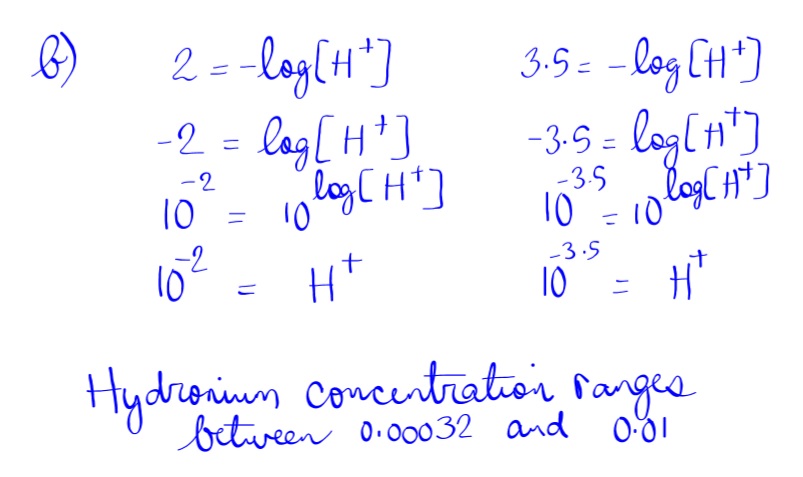 b) 2 = -log[H⁺] 3.5 = -log[H⁺]
-2 = log[H⁺] -3.5 = log[H⁺]
10⁻² = 10^log[H⁺] 10^-3.5 = 10^log[H⁺]
10⁻² = H⁺ 10^-3.5 = H⁺
Hydronium concentration ranges
between 0.00032 and 0.01